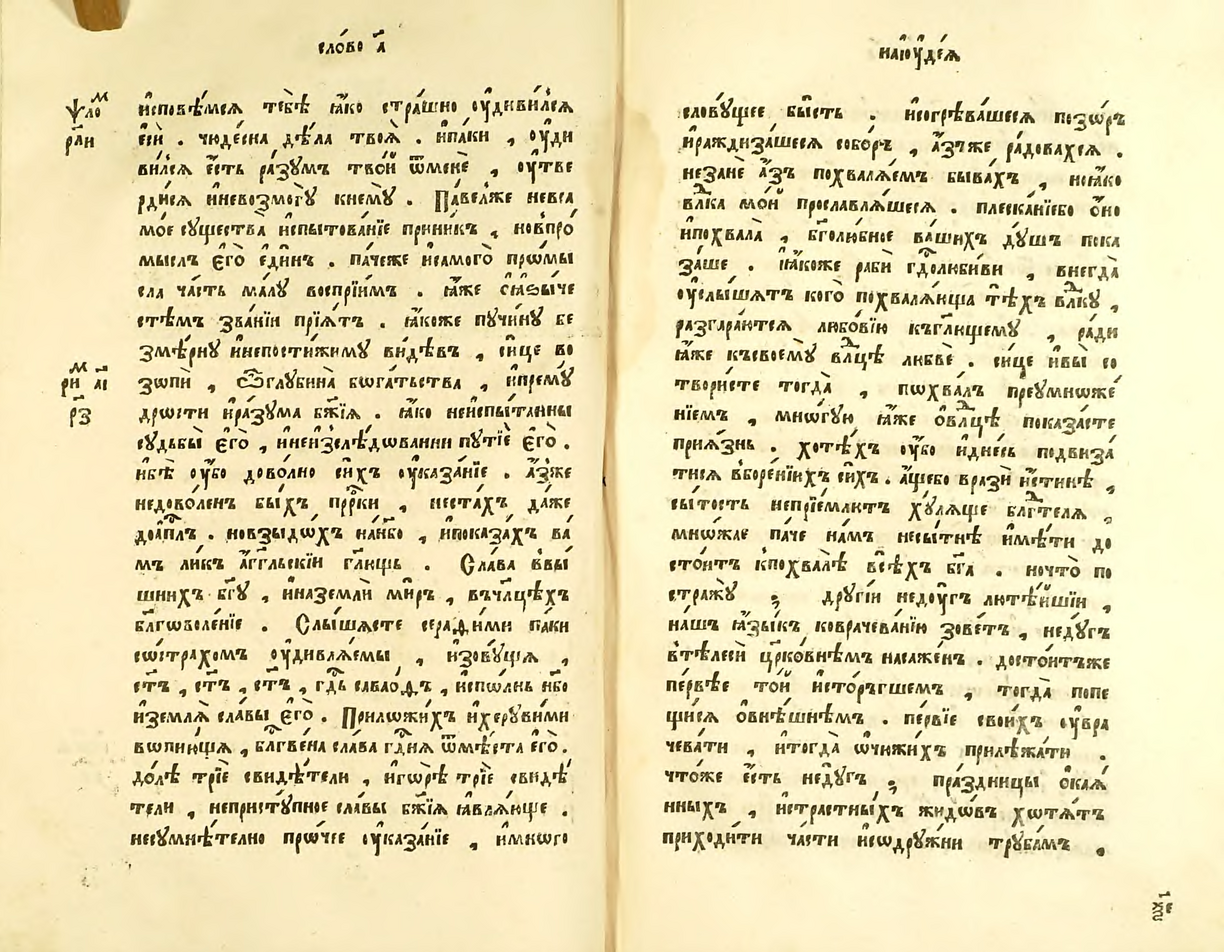 сло́во а҃
ѱло́м
рл҃и
и҆сповѣ́мсѧ тебѣ̀ ꙗ҆́ко стра́шно оу҆диви́лсѧ
є҆сѝ . чюде́сна дѣ́ла твоѧ̀ . и҆па́ки , оу҆ди
ви́лсѧ є҆́сть ра́зꙋмъ тво́й ѿменє̀ , оу҆тве
рди́сѧ и҆невозмогꙋ̀ кнемꙋ̀ . Па́велже невса
мое сꙋщества̀ и҆спытова́нїе прини́къ , новпро́
мыслъ є҆го̀ є҆ди́нъ . па́чеже иса́мого прѡ́мы
сла ча́сть ма́лꙋ воспрїи́мъ . ꙗ҆́же
стѣ́мъ зва́нїи прїѧ́тъ . ꙗ҆́коже пꙋчи́нꙋ бе
змѣ́рнꙋ и҆непостижи́мꙋ ви́дѣвъ , си́це во
м
ри а҃і
рз
зопѝ , ѽглꙋбина̀ бѡга́тьства , и҆премꙋ́
дрѡсти и҆ра́зꙋма бж҃їѧ . ꙗ҆́ко неи҆спы́танны
сꙋдьбы̀ є҆го̀ , и҆неи҆зслѣ́дѡванни пꙋтїѐ є҆го̀ .
и҆бѣ̀ оу҆́бо дово́лно си́хъ оу҆каза́нїе . а҆́зже
недово́ленъ бы́хъ прр҃ки , неста́хъ да́же
доап҃лъ . новзыдо́хъ нан҃бо , и҆показа́хъ ва́
мъ ли́къ а҆́гг҃льскїи гл҃ющь . Сла́ва ввы́
шнихъ бг҃ꙋ , и҆наземлѝ ми́ръ , въчл҃цѣхъ
бл҃гѡволе́нїе . Слы́шасте серафи́ми па́ки
сѡстра́хомъ оу҆дивлѧ́емы , и҆зовꙋ́щѧ ,
ст҃ъ , ст҃ъ , ст҃ъ , гд҃ь саваѡ́ѳъ , и҆спо́лнь нб҃о
и҆землѧ̀ сла́вы є҆го̀ . Прило́жихъ и҆херꙋви́ми
вѡпию́щѧ , бл҃гве́на сла́ва гд҃нѧ ѿмѣ́ста є҆го̀ .
до́лѣ трїѐ свидѣ́тели , и҆горѣ̀ трїѐ свидѣ́
тели , непристꙋ́пное сла́вы бж҃їѧ ꙗ҆влѧ́юще .
несꙋмнѣ́телно прѡ́чее оу҆каза́нїе , и҆мно́го
наіꙋде́ѧ
словꙋ́щее бы́сть . и҆согрѣва́шесѧ позо́ръ
и҆раждиза́шесѧ собо́ръ , а҆́зъже ра́довахсѧ .
незанѐ а҆́зъ похвалѧ́емъ быва́хъ , ноꙗ҆́ко
влⷣка мо́й прославлѧ́шесѧ . плеска́нїебо о҆́но
и҆похвала̀ , бг҃олю́бное ва́шихъ дꙋ́шъ пока
за́ше . ꙗ҆́коже рабѝ гдⷭ҇олюби́ви , внегда̀
оу҆слы́шатъ кого̀ похвалѧ́юща тѣ́хъ влⷣкꙋ ,
разгара́ютсѧ любо́вїю къгл҃ющемꙋ , ра́ди
ꙗ҆́же късвоемꙋ̀ влⷣцѣ любвѐ . си́це и҆вы̀ со
твори́сте тогда̀ , пѡхва́лъ преꙋмноже́
нїемъ , мно́гꙋю ꙗ҆́же ѡ҆влⷣцѣ показа́сте
прїѧ́знь . хотѣ́хъ оу҆́бо и҆дне́сь подвиза́
тисѧ вборе́нїихъ си́хъ . а҆́щебо вразѝ и҆́стинѣ ,
сы́тость непрїе́млютъ хꙋ́лѧще блⷣгтелѧ ,
мно́жае па́че на́мъ несы́тнѣ и҆мѣ́ти до
сто́итъ кпохвалѣ̀ всѣ́хъ бг҃а . ночто̀ по
стра́жꙋ ; дрꙋгі́й недꙋ́гъ лютѣ́йшїи ,
на́шъ ꙗ҆зы́къ коврачева́нїю зове́тъ , недꙋ́гъ
втѣлесѝ цр҃ко́внѣмъ насаже́нъ . досто́итъже
пе́рвѣе то́й и҆сто́ргшемъ , тогда̀ попе
щи́сѧ ѡ҆внѣ́шнѣмъ . пе́рвїе свои́хъ оу҆вра
чева́ти , и҆тогда̀ ѡ҆чюжи́хъ прилѣжа́ти .
что́же є҆́сть недꙋ́гъ ; пра́здницы ѻ҆каѧ́
нныхъ , и҆стра́стныхъ жидо́въ хотѧ́тъ
приходи́ти ча́сти и҆содрꙋ́жни трꙋба́мъ .